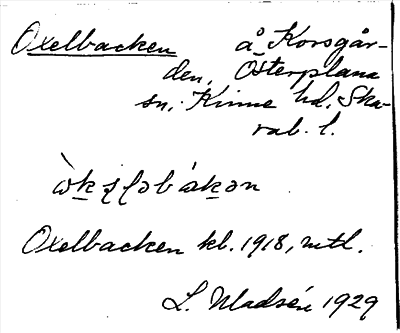 Oxelbacken å Korsgår-
den, Österplana
sn, Kinne hd, Ska-
rab. l.
Oxelbacken kl. 1918, mtl.
L. Madsén 1929